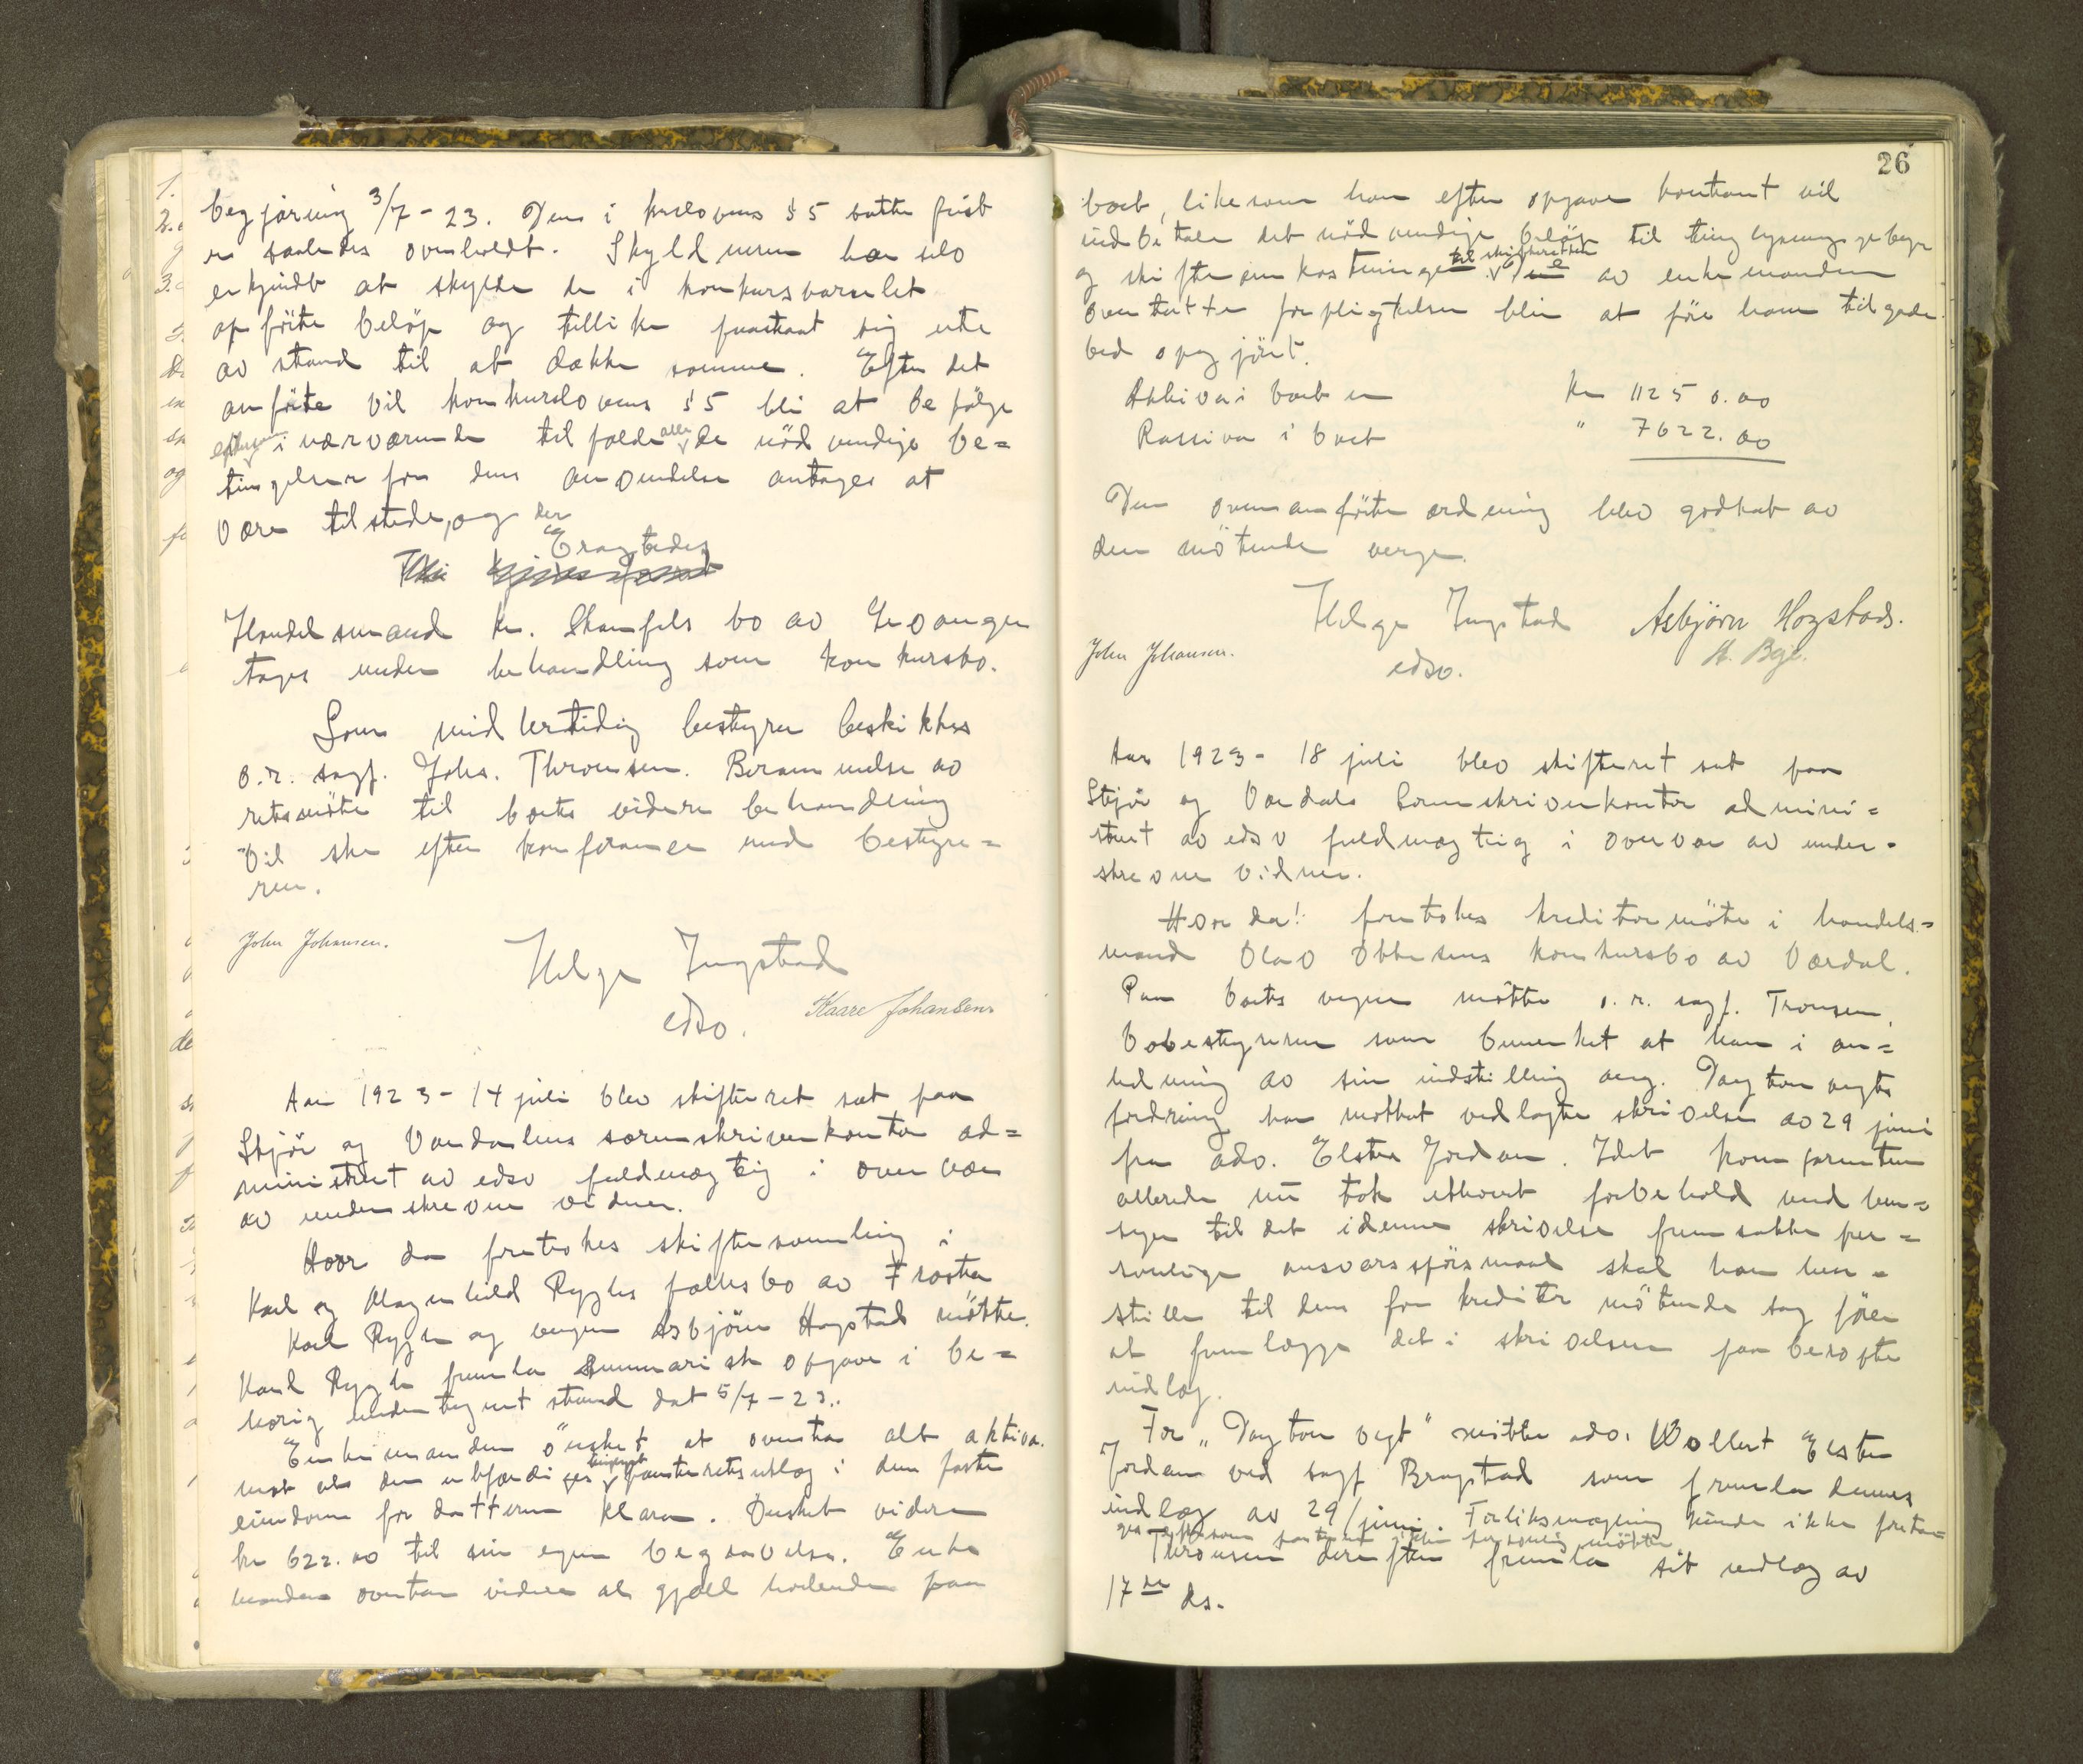 begjæring 3/7-23. Den i krslovens § 5 satte frist
er saaledes overholdt. Skyldneren har selv
erkjendt at skylde de i konkursvarselet
opførte beløp og tillike funstaat sig ute
av stand til at dække samme. Efter det
anførte vil konkurslovens § 5 bli at befølge
eftersom i nærværende tilfælde alle de nødvendige be=
tingelser for dens anvendelse antages at
være tilstede, og der
Eragtedes
Handelsmand Kr. Skamfels bo av Levanger
tages under behandling som konkursbo.
Som midlertidig bestyrer beskikkes
o.r. sagf. Johs. Thronsen. Berammelse av
retsmøte til boets videre behandling
vil ske efter konferanse med bestyre=
ren.
John Johansen.
Helge Ingstad
edsv.
Kaare Johansen
Aar 1923 - 14 juli blev skifteret sat paa
Stjør og Værdalens sorenskriverkontor ad=
ministrert av edsv fuldmægtig i overvær
av underskrevne vidner.
Hvor da foretokes skiftesamling i
Karl og Magnhild Ryghs fællesbo av Frosta
Karl Rygh og vergen Asbjørn Hogstad møtte.
Karl Rygh fremla summarisk opgave i be=
hørig undertegnet stand dat 5/7-23.
Enkemanden ønsket at overta alt aktiva.
mot at der utfærdiges tinglyst panteretsutlæg i den faste
eiendom for datteren Klara. Ønsket videre
kr 622.00 til sin egen begravelse. Enke
manden overtar videre al gjæld heftende paa
26
boet, likesom han efter opgave kontant vil
indbetale det nødvendige beløp til tinglysningsgebyr
og skifteomkostninger til skifteretten. De av enkemanden
overtatte forpligtelser blir at føre ham tilgode
ved opgjøret.
Aktiva i boet er kr 11250.00
Passiva i boet " 7622.00
Den ovenanførte ordning blev godkat av
den møtende verge.
Helge Ingstad Asbjørn Hogstad.
John Johansen.
edsv.
Aar 1923 - 18 juli blev skifteret sat paa
Stjør og Værdals Sorenskriverkontor admini=
strert av edsv fuldmægtig i overvær av under=
skrevne vidner.
Hvor da! foretokes kreditormøte i handels=
mand Olav Okkenens konkursbo av Værdal.
Paa boets vegne møtte o.r. sagf. Tronsen,
bobestyreren som bemerket at han i an=
ledning av sin indstilling ang. Dayton vegts
fordring har mottat vedlagte skrivelse av 29 juni
fra adv. Elster Jordan. Idet komparenten
allerede nu tok ethvert forbehold med hen=
syn til det i denne skrivelse fremsatte per=
sonlige ansvarsspørsmaal skal han hen=
stille til den for kreditor møtende sagfører
at fremlægge det i skrivelsen paaberopte
indlæg.
For "Dayton vegt" møtte adv. Wollert Elster
Jordan ved sagf Bragstad som fremla dennes
indlæg av 29/juni. Forliksmægling kunde ikke foreta=
ges eftersom parterne ikke personlig møtte
Thronsen derefter fremla sit indlæg av
17de ds.